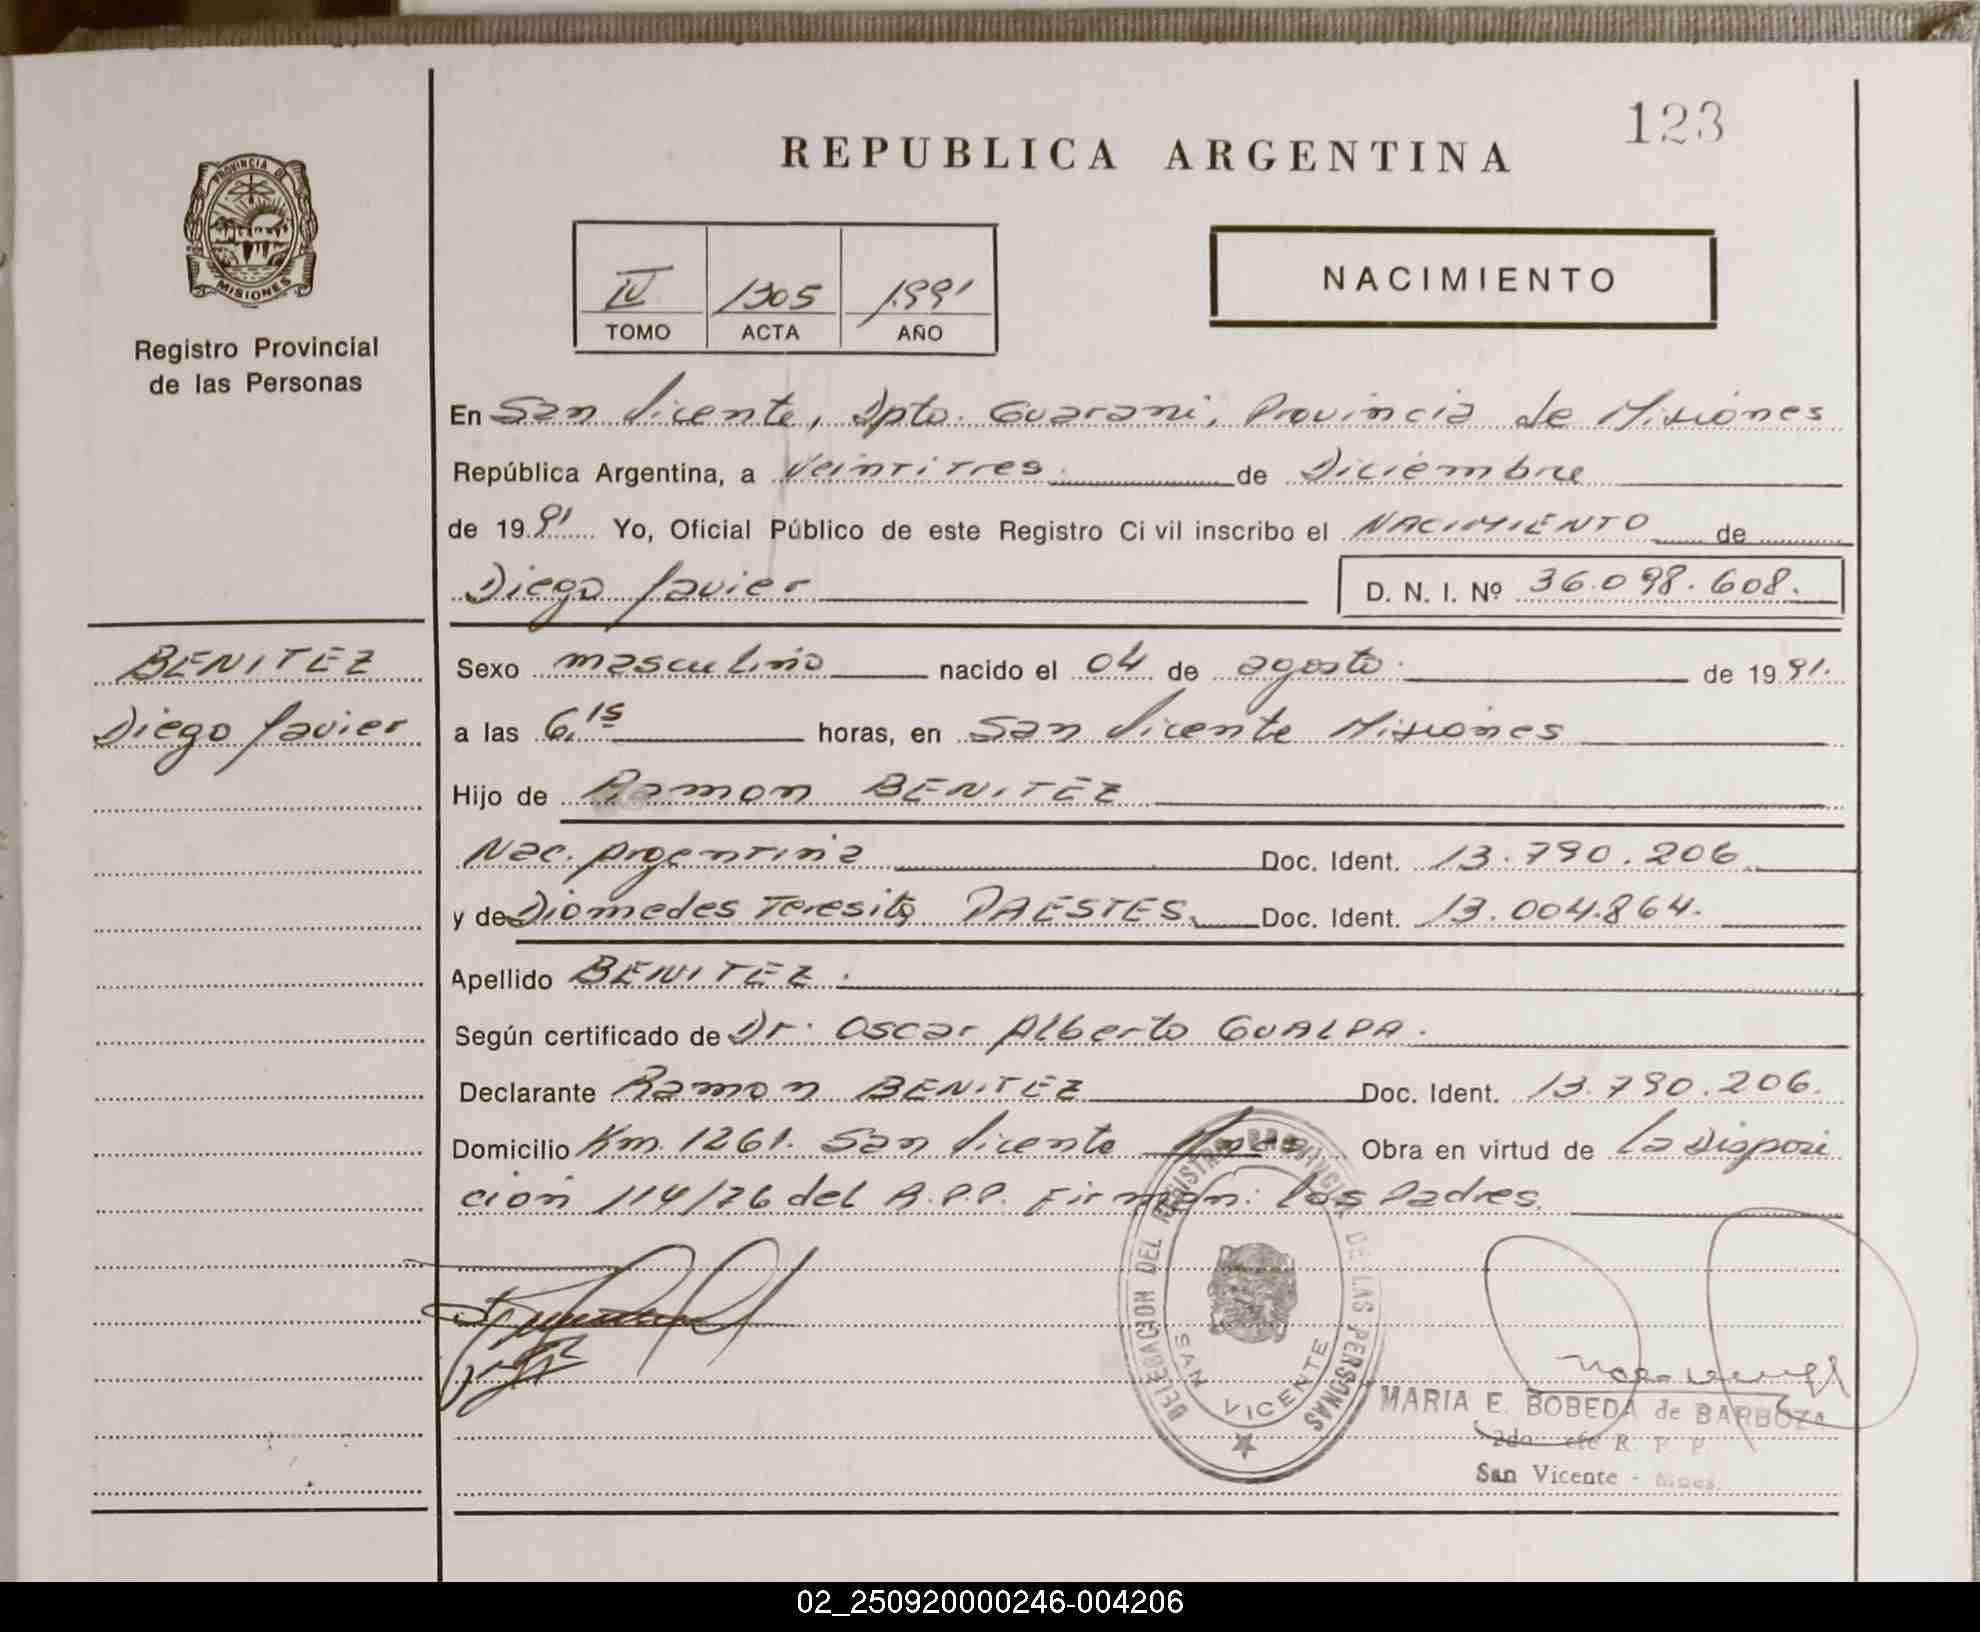 123
REPUBLICA ARGENTINA
PROVINCIA DE
MISIONES
Registro Provincial
de las Personas
IV 1305 1991
TOMO ACTA AÑO
NACIMIENTO
En San Vicente, Dpto. Guarani, Provincia de Misiones
República Argentina, a Veintitres de Diciembre
de 1991 Yo, Oficial Público de este Registro Ci vil inscribo el NACIMIENTO de
Diego Javier D. N. I. Nº 36.098.608.
BENITEZ
Diego Javier
Sexo masculino nacido el 04 de agosto. de 1991.
a las 6,15 horas, en San Vicente Misiones
Hijo de Ramon BENITEZ
Nac. Argentina Doc. Ident. 13.790.206
y de Diomedes Teresita PAESTES Doc. Ident. 13.004.864.
Apellido BENITEZ.
Según certificado de Dr. Oscar Alberto GUALPA.
Declarante Ramon BENITEZ Doc. Ident. 13.790.206.
Domicilio Km. 1261. San Vicente Mnes. Obra en virtud de la Disposi
ción 114/76 del R.P.P. Firman: los Padres.
DELEGACION DEL REGISTRO PROVINCIAL DE LAS PERSONAS
SAN VICENTE
MARIA E. BOBEDA de BARBOZA
2do R. P. P.
San Vicente - Mnes.
02_250920000246-004206